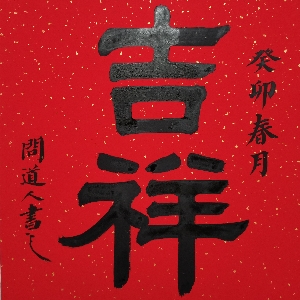 癸卯春月
吉祥
問道人書之